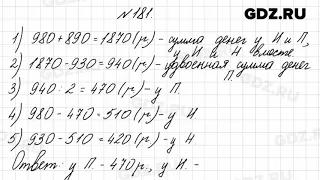 GDZ.RU
№ 181.
1) 980 + 890 = 1870 (р.) - сумма денег у И и П,
у И и Н вместе
2) 1870 - 930 = 940 (р.) - удвоенная сумма денег
П
3) 940 : 2 = 470 (р.) - у П.
4) 980 - 470 = 510 (р.) - у И.
5) 930 - 510 = 420 (р.) - у Н
Ответ: у П. - 470 р., у И. -
GDZ.RU